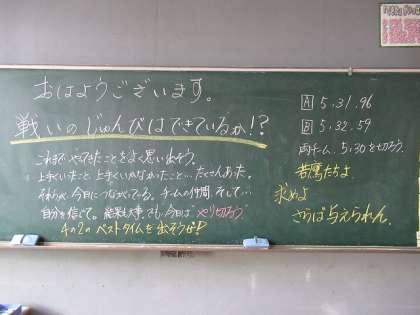 おはようございます。
戦いのじゅんびはできているか!?
これまでやってきたことをよく思い出そう。
上手くいたこと、上手くいかなかったこと…たくさんあった。
それらぜんぶ今日につながっている。チームの仲間、そして…
自分を信じて。結果も大事。でも、今日はやり切ろう。
4の2のベストタイムを出そうぜ!
A 5,31,96
B 5,32,59
両チーム、5,30を切ろう。
若鷹たちよ
求めよ
さらば与えられん。